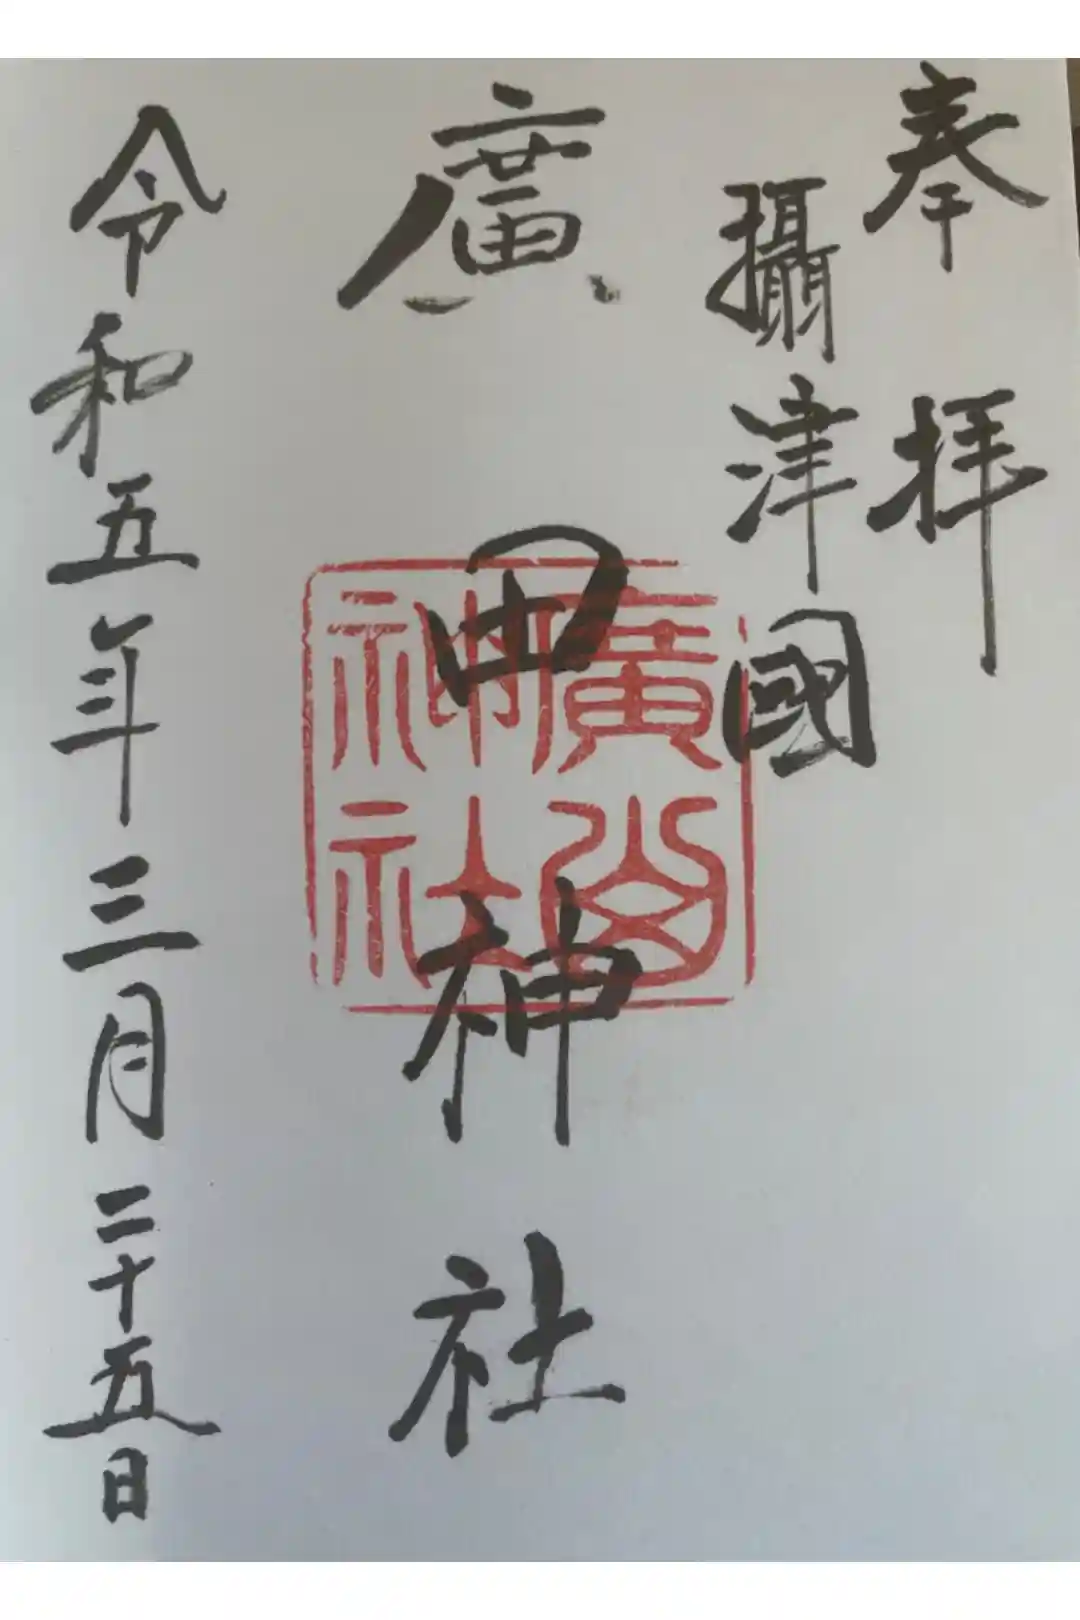 奉拝
攝津國
廣田神社
令和五年三月二十五日
廣
神社